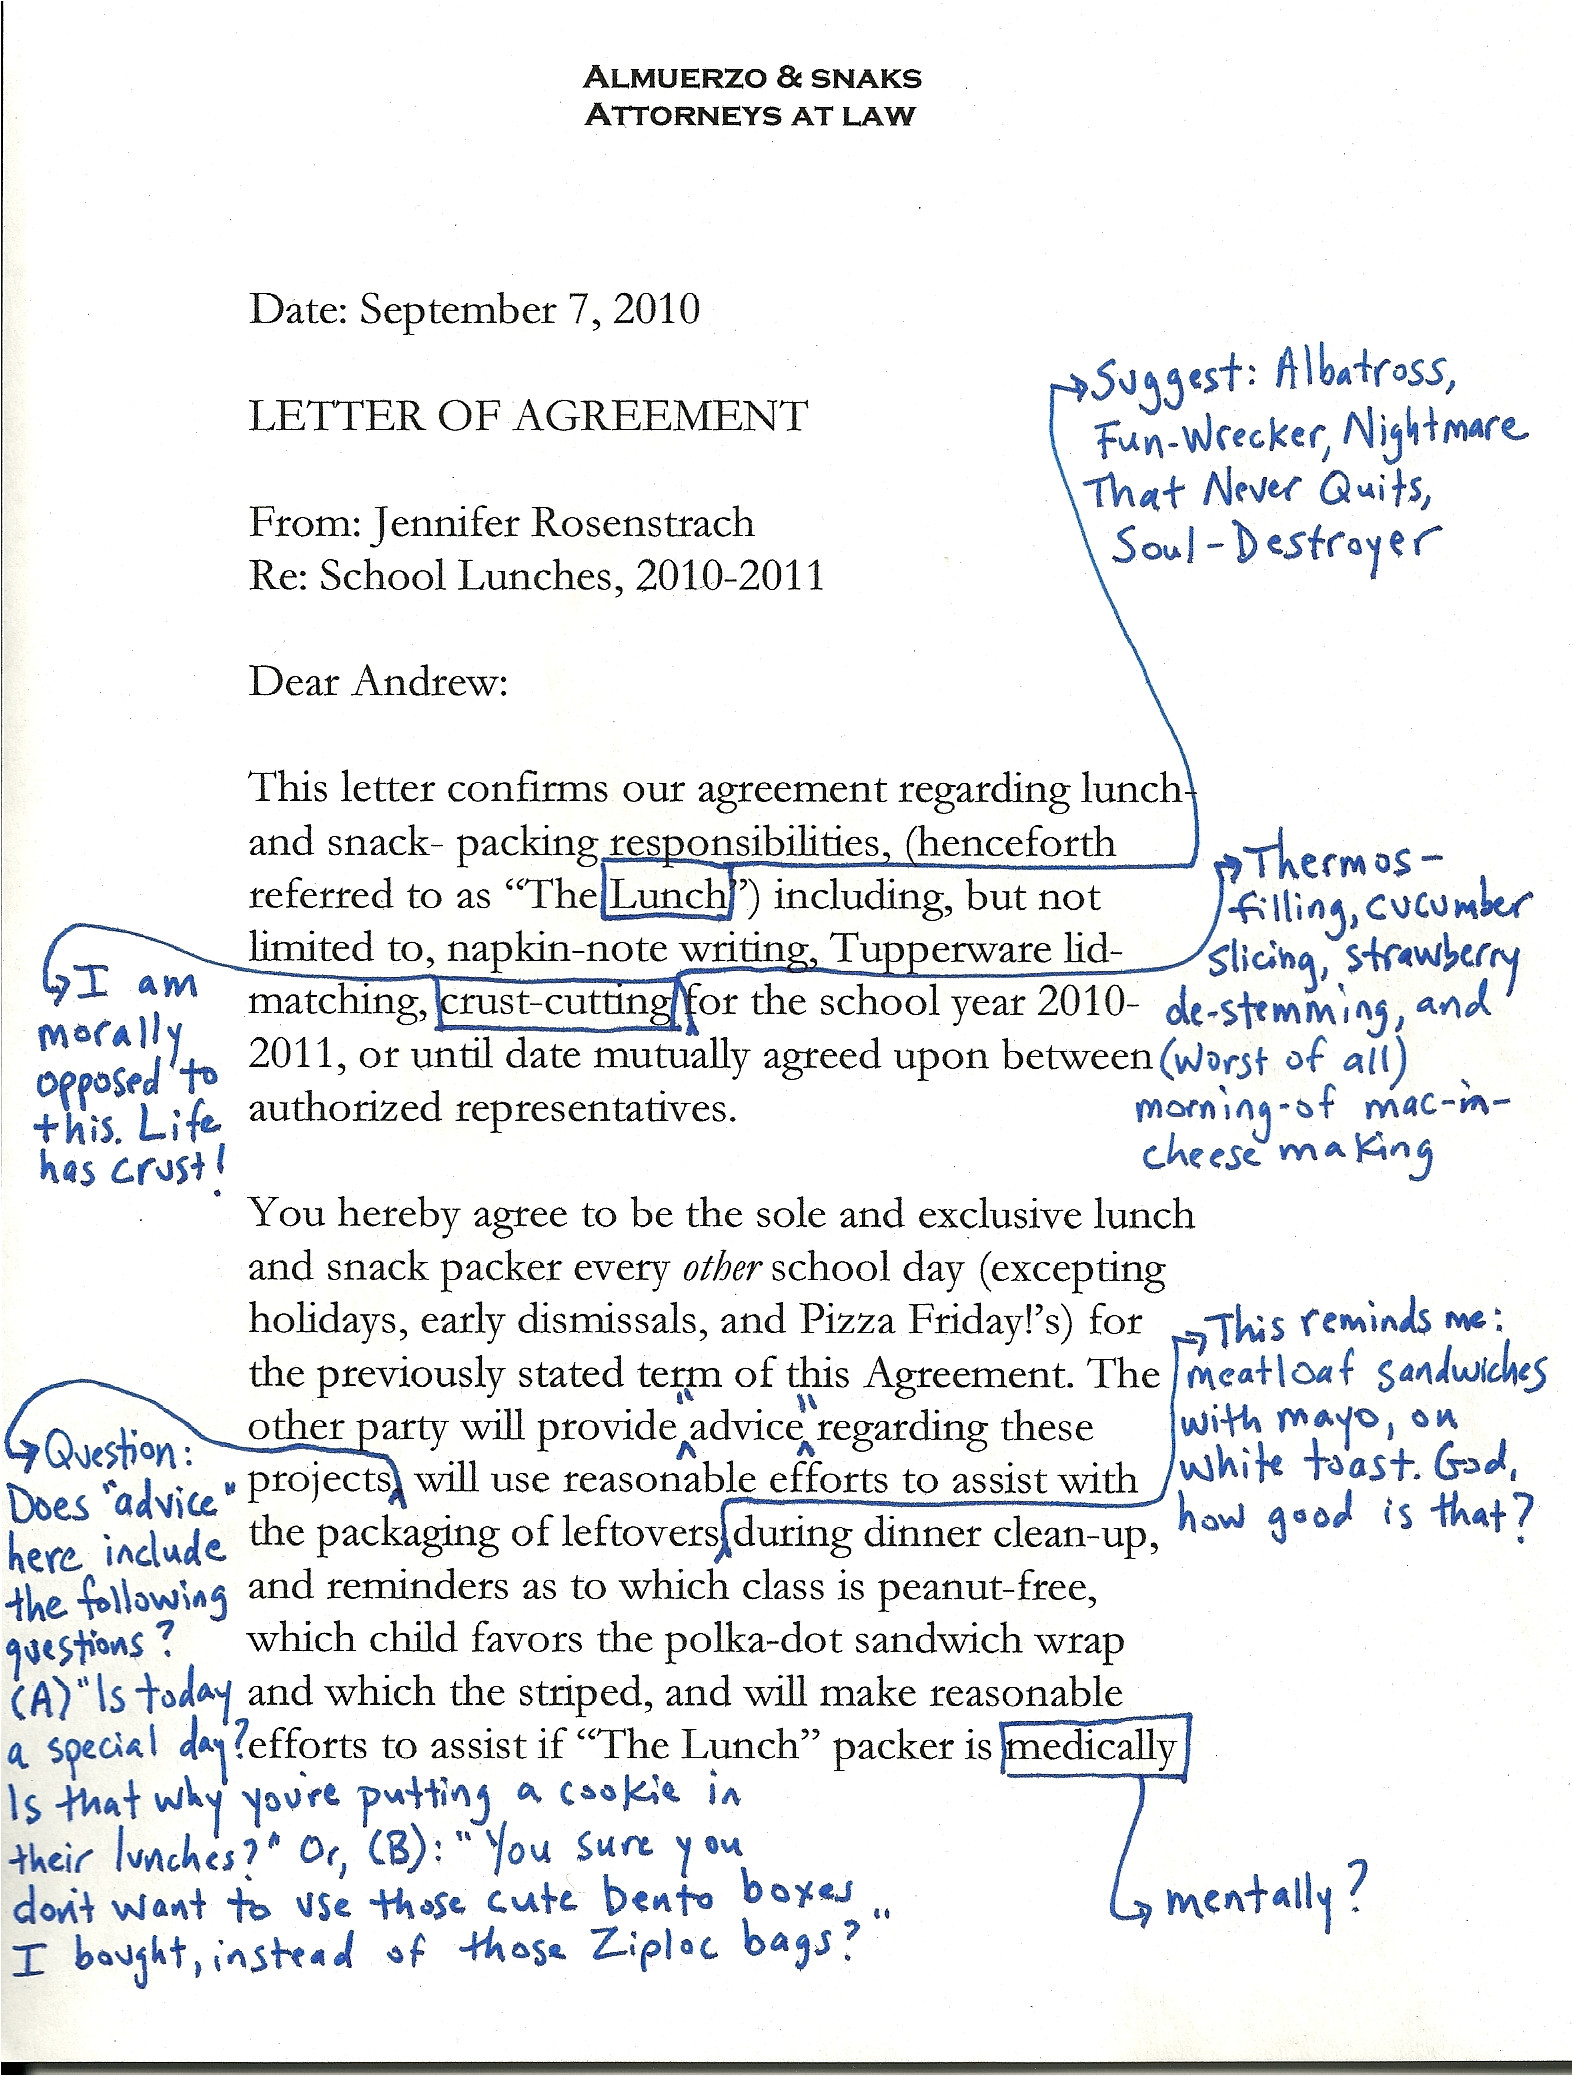 ALMUERZO & SNAKS
ATTORNEYS AT LAW
Date: September 7, 2010
LETTER OF AGREEMENT
From: Jennifer Rosenstrach
Re: School Lunches, 2010-2011
Dear Andrew:
Suggest: Albatross,
Fun-Wrecker, Nightmare
That Never Quits,
Soul-Destroyer
This letter confirms our agreement regarding lunch-
and snack- packing responsibilities, (henceforth
referred to as “The Lunch”) including, but not
limited to, napkin-note writing, Tupperware lid-
matching, crust-cutting, for the school year 2010-
2011, or until date mutually agreed upon between
authorized representatives.
I am
morally
opposed to
this. Life
has crust!
Thermos-
filling, cucumber
slicing, strawberry
de-stemming, and
(worst of all)
morning-of mac-n-
cheese making
You hereby agree to be the sole and exclusive lunch
and snack packer every other school day (excepting
holidays, early dismissals, and Pizza Friday!’s) for
the previously stated term of this Agreement. The
other party will provide "advice" regarding these
projects, will use reasonable efforts to assist with
the packaging of leftovers, during dinner clean-up,
and reminders as to which class is peanut-free,
which child favors the polka-dot sandwich wrap
and which the striped, and will make reasonable
efforts to assist if “The Lunch” packer is medically
This reminds me:
meatloaf sandwiches
with mayo, on
white toast. God,
how good is that?
Question:
Does "advice"
here include
the following
questions?
(A) "Is today
a special day?
Is that why you're putting a cookie in
their lunches?" Or, (B): "You sure you
don't want to use those cute bento boxes
I bought, instead of those Ziploc bags?"
mentally?